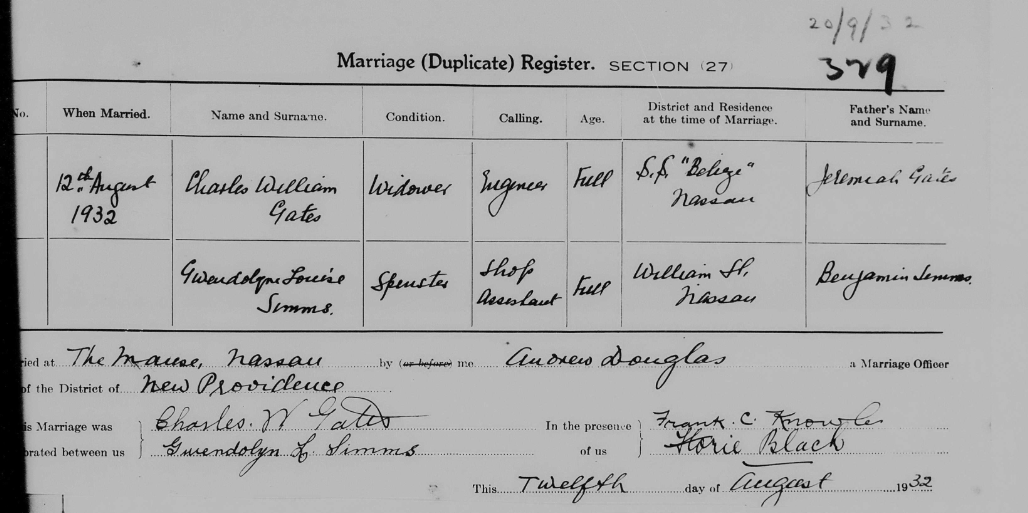 20/9/32
Marriage (Duplicate) Register. SECTION (27)
329
No. When Married. Name and Surname. Condition. Calling. Age. District and Residence at the time of Marriage. Father's Name and Surname.
12th August 1932 Charles William Gates Widower Engineer Full S.S. "Belize" Nassau Jeremiah Gates
Gwendolyne Louise Simms. Spinster Shop Assistant Full William St. Nassau Benjamin Simms.
ried at The Manse, Nassau by (or before) me Andrew Douglas a Marriage Officer
of the District of New Providence
is Marriage was Charles. W Gates In the presence Frank. C. Knowles
brated between us Gwendolyn L. Simms of us Florie Black
This Twelfth day of August 1932